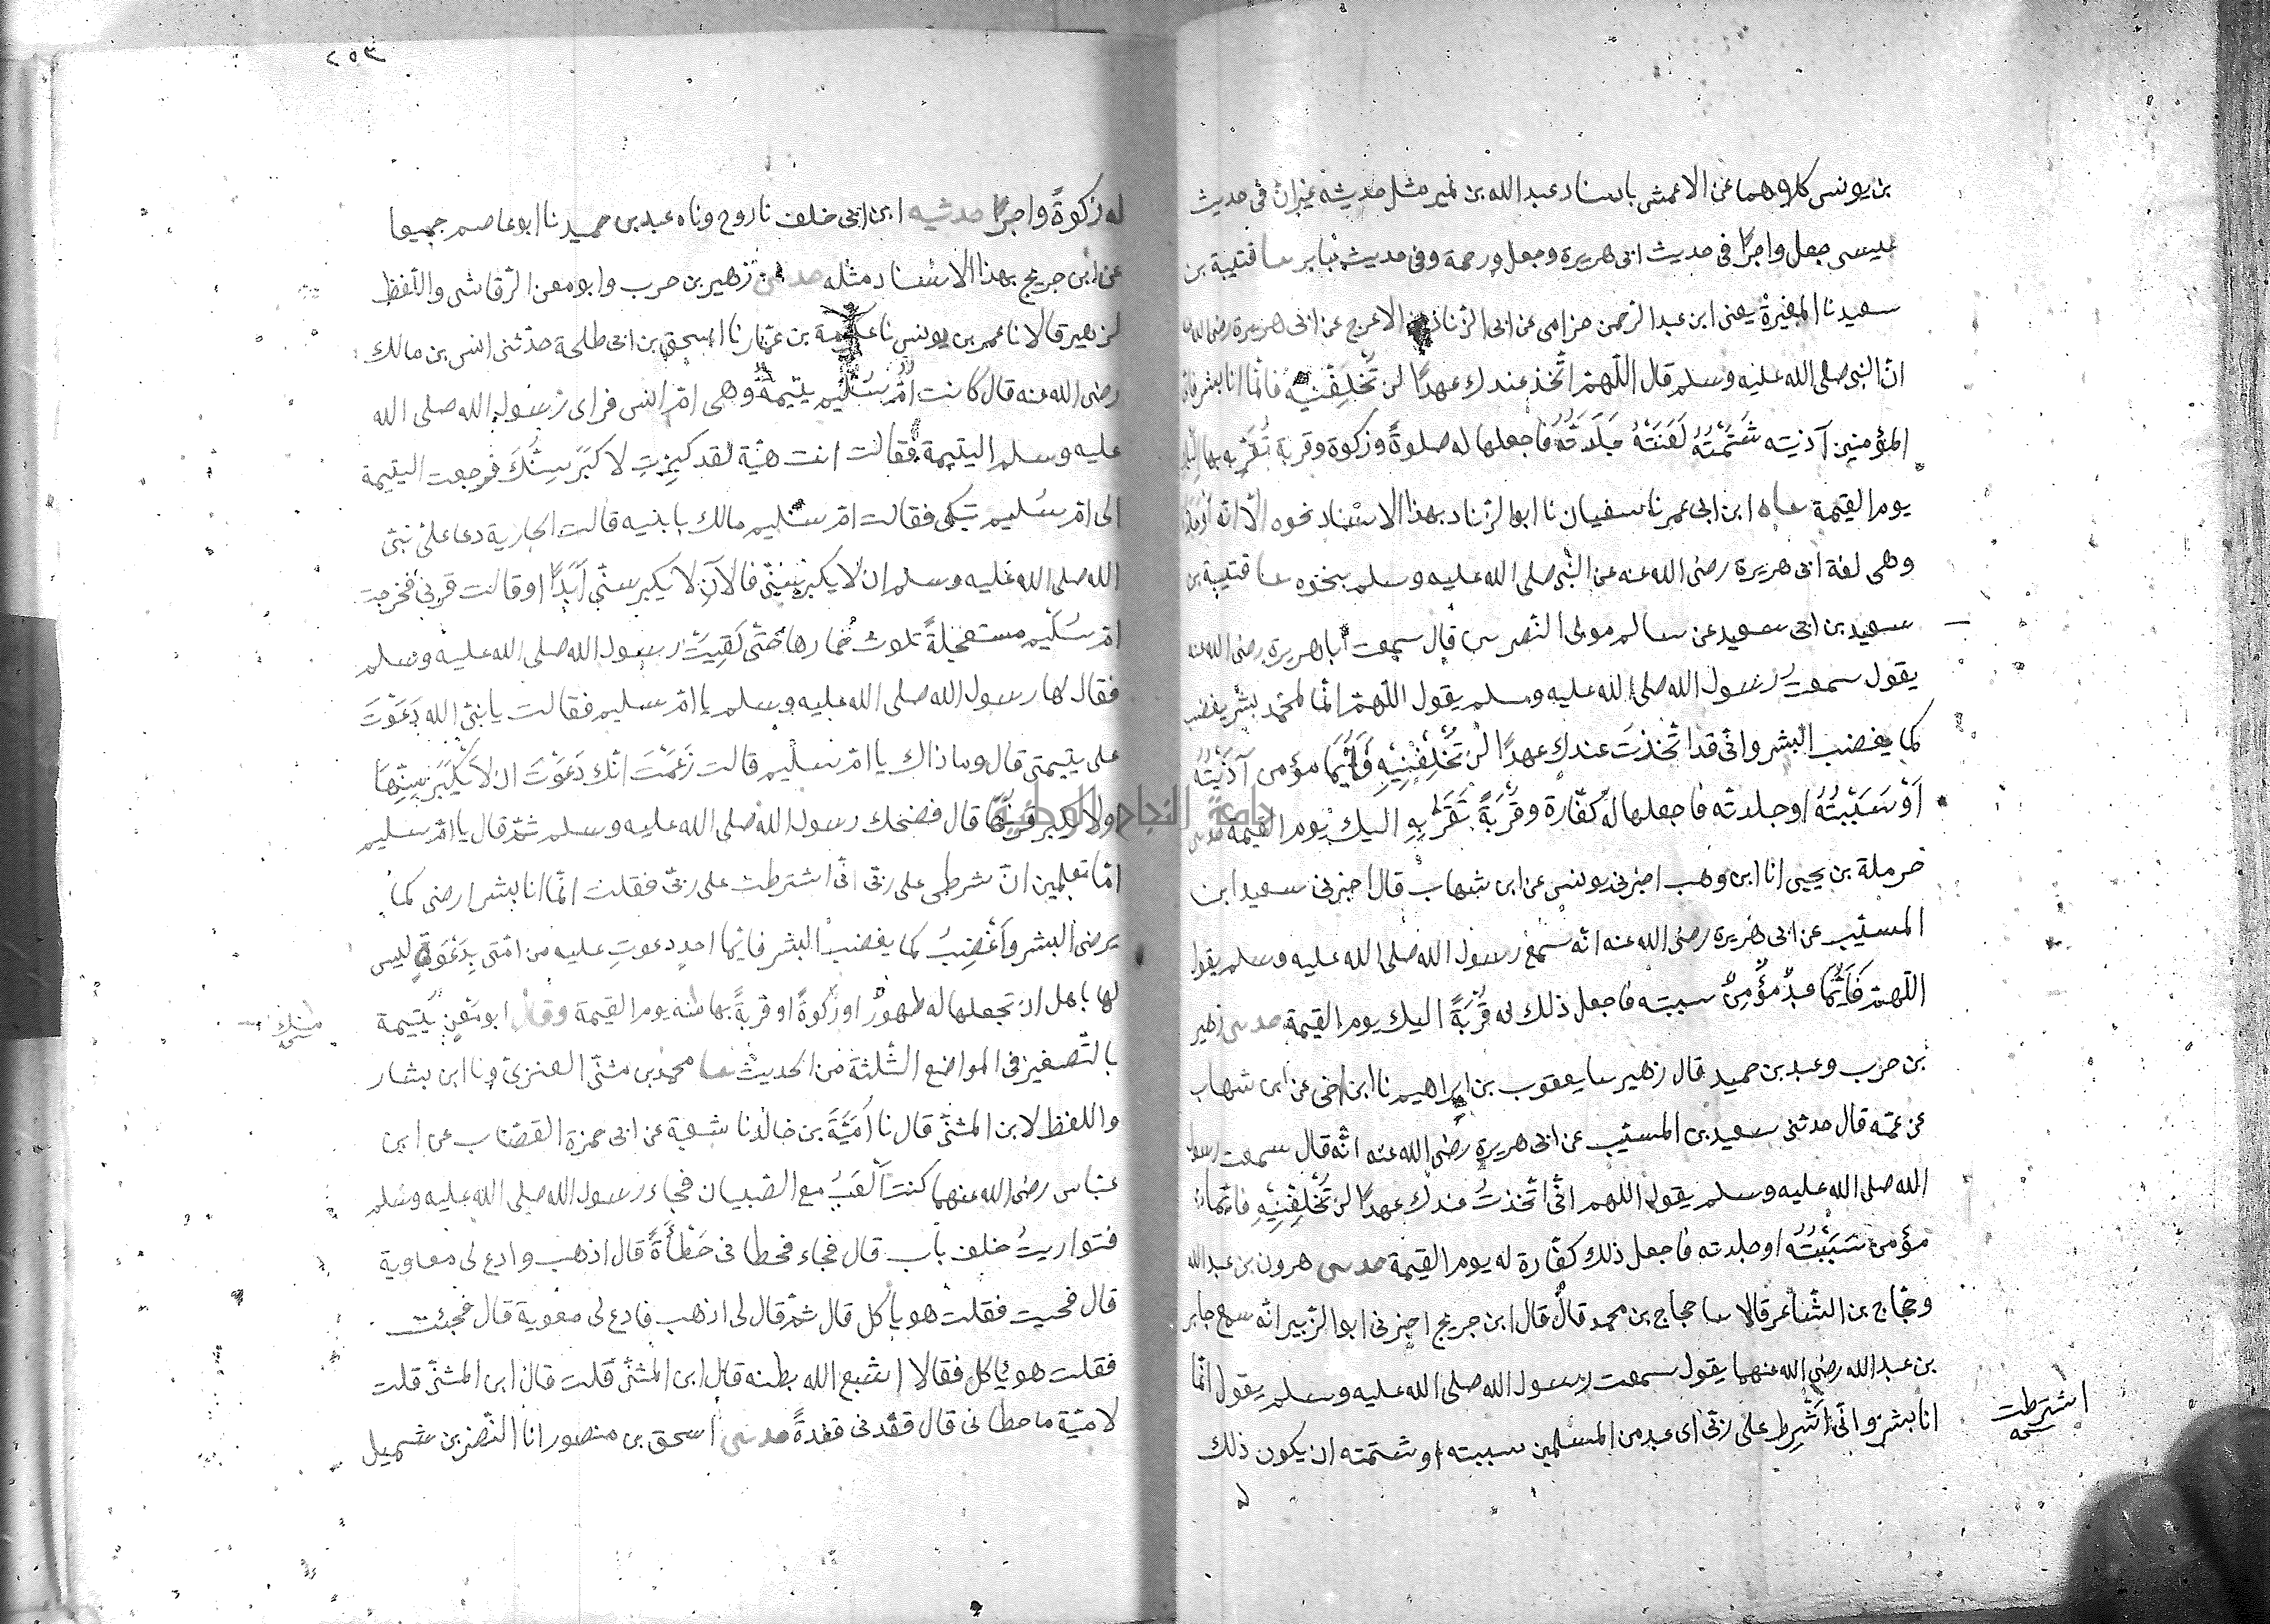 بن يونس كلاهما عن الاعمش باسناد عبد الله بن نمير مثل حديثه غير ان فى حديث
عيسى جعل واجرًا فى حديث ابى هريرة وجعل ورحمة وفى حديث جابر سا قتيبة بن
سعيد نا المغيرة يعنى ابن عبد الرحمن حزامى عن ابى الزناد عن الاعرج عن ابى هريرة رضى الله
انّ النبى صلى الله عليه وسلم قال اللّهمّ اتّخذ عندك عهدًا لن تُخْلِفَنيْه فانّما انا بشر فاىّ
المؤمنين آذيته شَتَمْتُهُ لَعَنْتُهُ جَلَدتُّهُ فاجعلها له صلوةً وزكوة وقربة تُقَرِّبه بها اليك
يوم القيمة ساه ابن ابى عمر نا سفيان نا ابو الزناد بهذا الاسناد نحوه الّا انه
وهى لغة ابى هريرة رضى الله عنه عن النبى صلى الله عليه وسلم بنحوه سا قتيبة بن
سعيد بن ابى سعيد عن سالم مولى النصرىں قال سمعت أبا هريرة رضى الله عنه
يقول سمعت رسول الله صلى الله عليه وسلم يقول اللّهمّ انّما محمد بشر يغضب
كما يغضب البشر وانّى قد اتّخذت عندك عهدًا لن تُخْلِفَنِيْهِ فَأَيُّمَا مؤمن آذَيْتُهُ
اَوْ سَبَبْتُهُ او جلدته فاجعلها له كفّارة وقُرْبَةً تُقَرِّبُه بها اليك يوم القيمة حدثنى
حرملة بن يحيى انا ابن وهب اخبرنى يونس عن ابن شهاب قال اخبرنى سعيد ابن
المسيّب عن ابى هريرة رضى الله عنه انه سمع رسول الله صلى الله عليه وسلم يقول
اللّهمّ فَأَيُّمَا عبدٌ مُؤْمِنٌ سببته فاجعل ذلك له قُرْبَةً اليك يوم القيمة حدثنى زهير
بن حرب وعبد بن حميد قال زهير سا يعقوب بن ابراهيم نا ابن اخى عن ابن شهاب
عن عمّه قال حدثنى سعيد بن المسيّب عن ابى هريرة رضى الله عنه انّه قال سمعت رسول
الله صلى الله عليه وسلم يقول اللّهم انّى اتّخذتُ عندك عهدًا لن تُخْلِفَنِيْهِ فايّما
مؤمن سَبَبْتُهُ او جلدته فاجعل ذلك كفّارة له يوم القيمة حدثنى هرون بن عبد الله
وحجّاج بن الشّاعر قالا سا حجاج بن محمد قال قال ابن جريج اخبرنى ابو الزّبير انّه سمع جابر
بن عبد الله رضى الله عنهما يقول سمعت رسول الله صلى الله عليه وسلم يقول انّما
انا بشر وانّى اَشْتَرِط على ربّى اى عبد من المسلمين سببته او شتمته ان يكون ذلك
اشترطت
له
٢٥٣
له زكوةً واجرًا حدثنيه ابن ابى خلف نا روح وناه عبد بن حميد نا ابو عاصم جميعا
عن ابن جريج بهذا الاسناد مثله حدثنى زهير بن حرب وابو معن الرّقاشى واللّفظ
لزهير قالا نا عمر بن يونس نا عكرمة بن عمّار نا اسحق بن ابى طلحة حدّثنى انس بن مالك
رضى الله عنه قال كانت عند اُمّ سُلَيْم يتيمةٌ وهى امّ انس فراى رسول الله صلى الله
عليه وسلم اليتيمة فقالت انت هيَّه لقد كبرتِ لا كَبِرَ سِنُّكَ فرجعت اليتيمة
الى امّ سُليم تبكى فقالت امّ سُليم مالك يا بنيه قالت الجارية دعا علىّ نبىّ
الله صلى الله عليه وسلم ان لا يكبر سنى فالآن لا يكبر سنّى ابدًا او قالت قرنى فخرجت
امّ سُلَيْم مستعجلةً تلوث خمارها حتّى لَقِيَتْ رسول الله صلى الله عليه وسلم
فقال لها رسول الله صلى الله عليه وسلم يا امّ سليم فقالت يا نبىّ الله دَعَوْتَ
على يتيمتى قال وما ذاك يا امّ سليم قالت زَعَمَتْ انّك دَعَوْتَ ان لا يَكْبَر سِنُّهَا
ولا يكبر قرنُها قال فضحك رسول الله صلى الله عليه وسلم ثمّ قال يا امّ سليم
امّا تعلمين انّ شرطى على ربّى انّى اشترطت على ربّى فقلت انّما انا بشر ارضى كما
يرضى البشر واَغْضبُ كما يغضب البشر فايّما احدٍ دعوت عليه من امّتى بِدَعْوَةٍ ليس
لها باهل ان تجعلها له طهورًا وزكوةً او قربةً بها منه يوم القيمة وقال ابو معن يُتَيِّمة
منك
بالتّصغير فى المواضع الثّلثة من الحديث سا محمد بن مثنّى العنزىّ ونا ابن بشار
واللفظ لابن المثنّى قال نا اُمَيَّةَ بن خالد نا شعبة عن ابى حمزة القصّاب عن ابن
عبّاس رضى الله عنهما كنت اَلْعَبُ مع الصّبيان فجاء رسول الله صلى الله عليه وسلم
فتواريتُ خلف باب قال فجاء فحطانى حَطْأَةً قال اذهب وادع لى معاوية
قال فجيت فقلت هو يأكل قال ثمّ قال لى اذهب فادع لى معوية قال فجئت
فقلت هو يأكل فقال لا اشبع الله بطنه قال ابن المثنّى قلت قال ابن المثنّى قلت
لاميّة ما حطانى قال قفّدنى قفدةً حدثنى اسحق بن منصور انا النّضر بن شميل
جامعة النجاح الوطنية